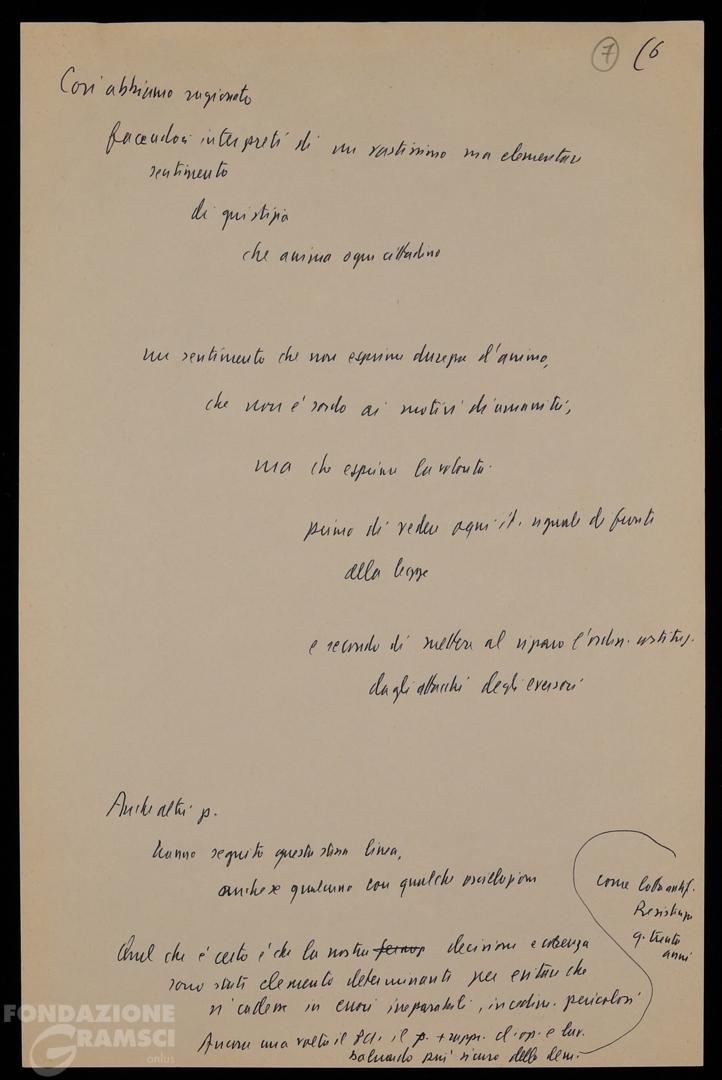 7 (6
Così abbiamo ragionato
facendoci interpreti di un vastissimo ma elementare
sentimento
di giustizia
che anima ogni cittadino
un sentimento che non esprime durezza d'animo,
che non è sordo ai motivi di umanità,
ma che esprime la volontà
primo di vedere ogni it. uguale di fronte
alla legge
e secondo di mettere al riparo l'ordin. costituz.
dagli attacchi degli eversori
Anche altri p.
hanno seguito questa stessa linea,
anche se qualcuno con qualche oscillazione
come lotta antif.
Resistenza
q. trenta
anni
Quel che è certo è che la nostra decisione e coerenza
sono stati elemento determinante per evitare che
si cadesse in errori irreparabili, in cedim. pericolosi
Ancora una volta il PCI, il p. + rappr. d. op. e lav.
baluardo più sicuro della dem.
FONDAZIONE
GRAMSCI
onlus